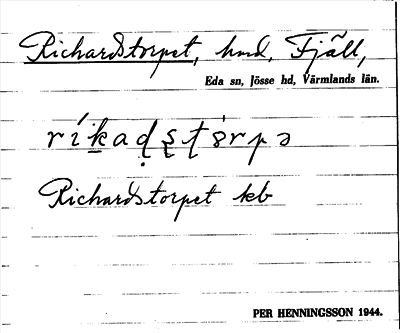 Richardstorpet, hmd, Fjäll,
Eda sn, Jösse hd, Värmlands län.
ríkadştörpə
Richardstorpet kb
PER HENNINGSSON 1944.